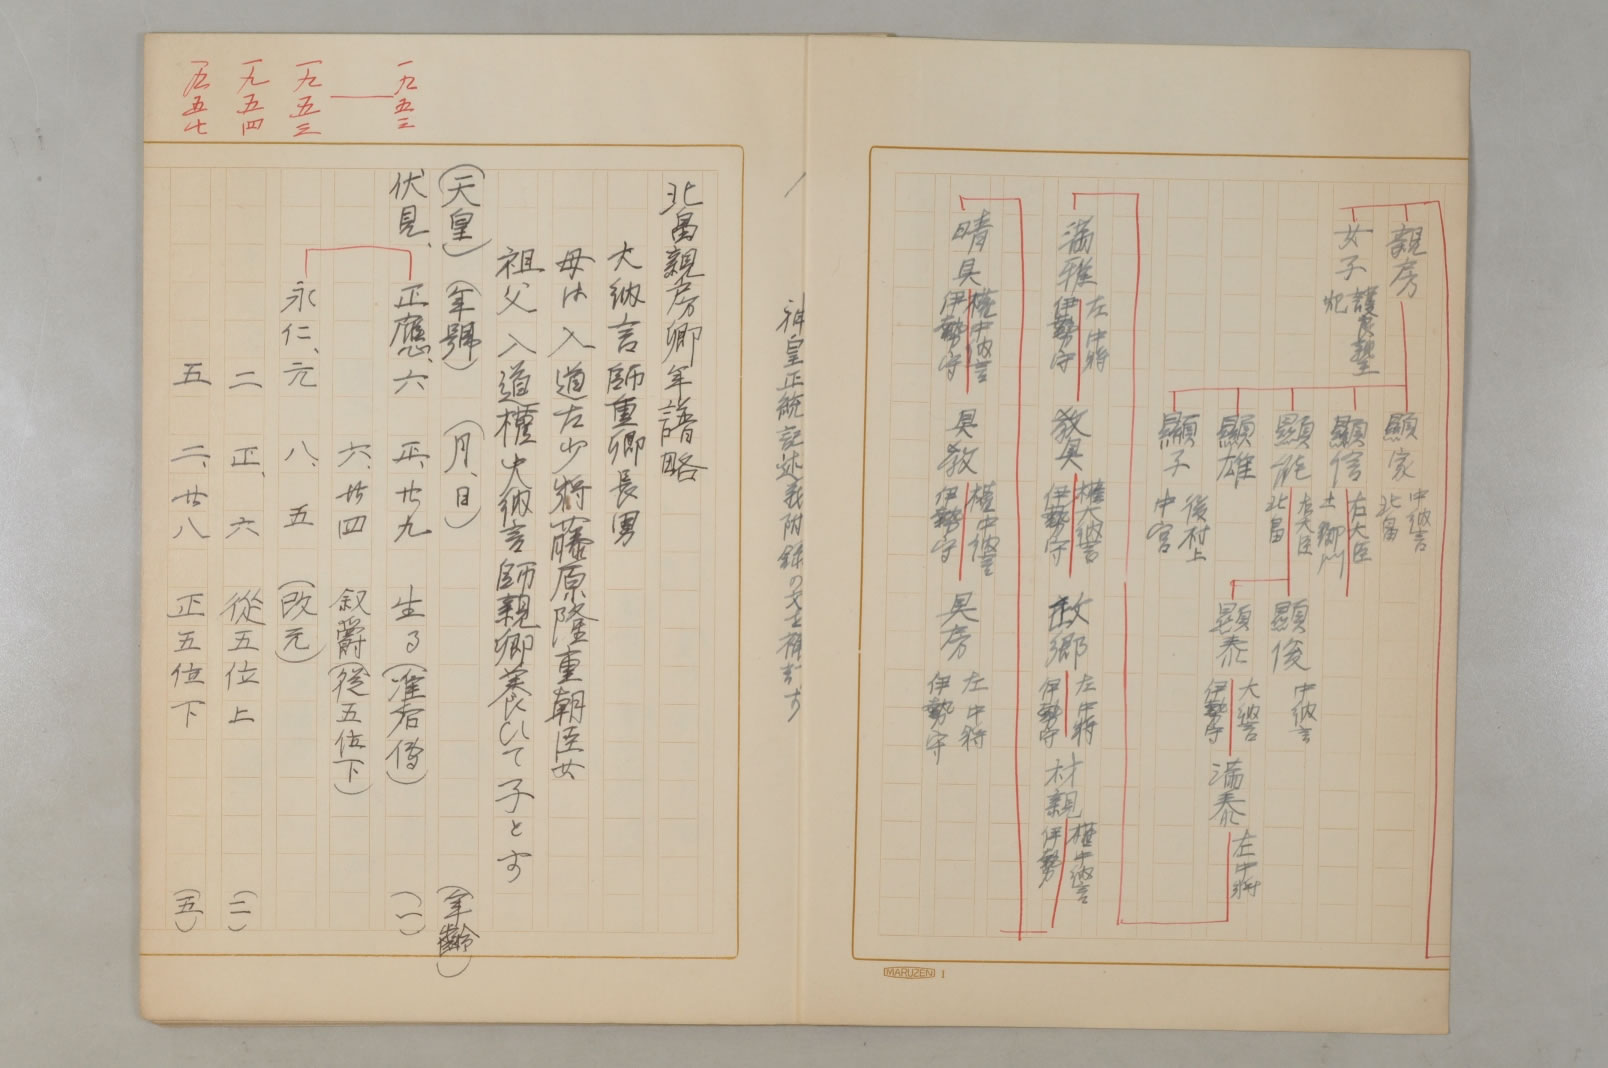 親房
女子 護良親王妃
顯家 中納言 北畠
顯信 右大臣 土御門
顯能 右大臣 北畠
顯雄
顯子 後村上中宮
顯俊 中納言
顯泰 大納言 伊勢守
満泰 左中将
満雅 左中将 伊勢守
教具 權大納言 伊勢守
政郷 左中将 伊勢守
材親 權中納言 伊勢
晴具 權中納言 伊勢守
具教 權中納言 伊勢守
具房 左中将 伊勢守
MARUZEN 1
神皇正統記述義附録の文を補
北畠親房卿年譜略
大納言師重卿長男
母は入道左少将藤原隆重朝臣女
祖父入道權大納言師親卿養ひて子とす
(天皇) (年號) (月、日) (年齡)
一九五三
伏見、 正應、六 正、廿九 生る (准后傳) (一)
六、廿四 叙爵 (從五位下)
一九五三
永仁、元 八、五 (改元)
一九五四
二 正、六 從五位上 (二)
一九五七
五 二、廿八 正五位下 (五)